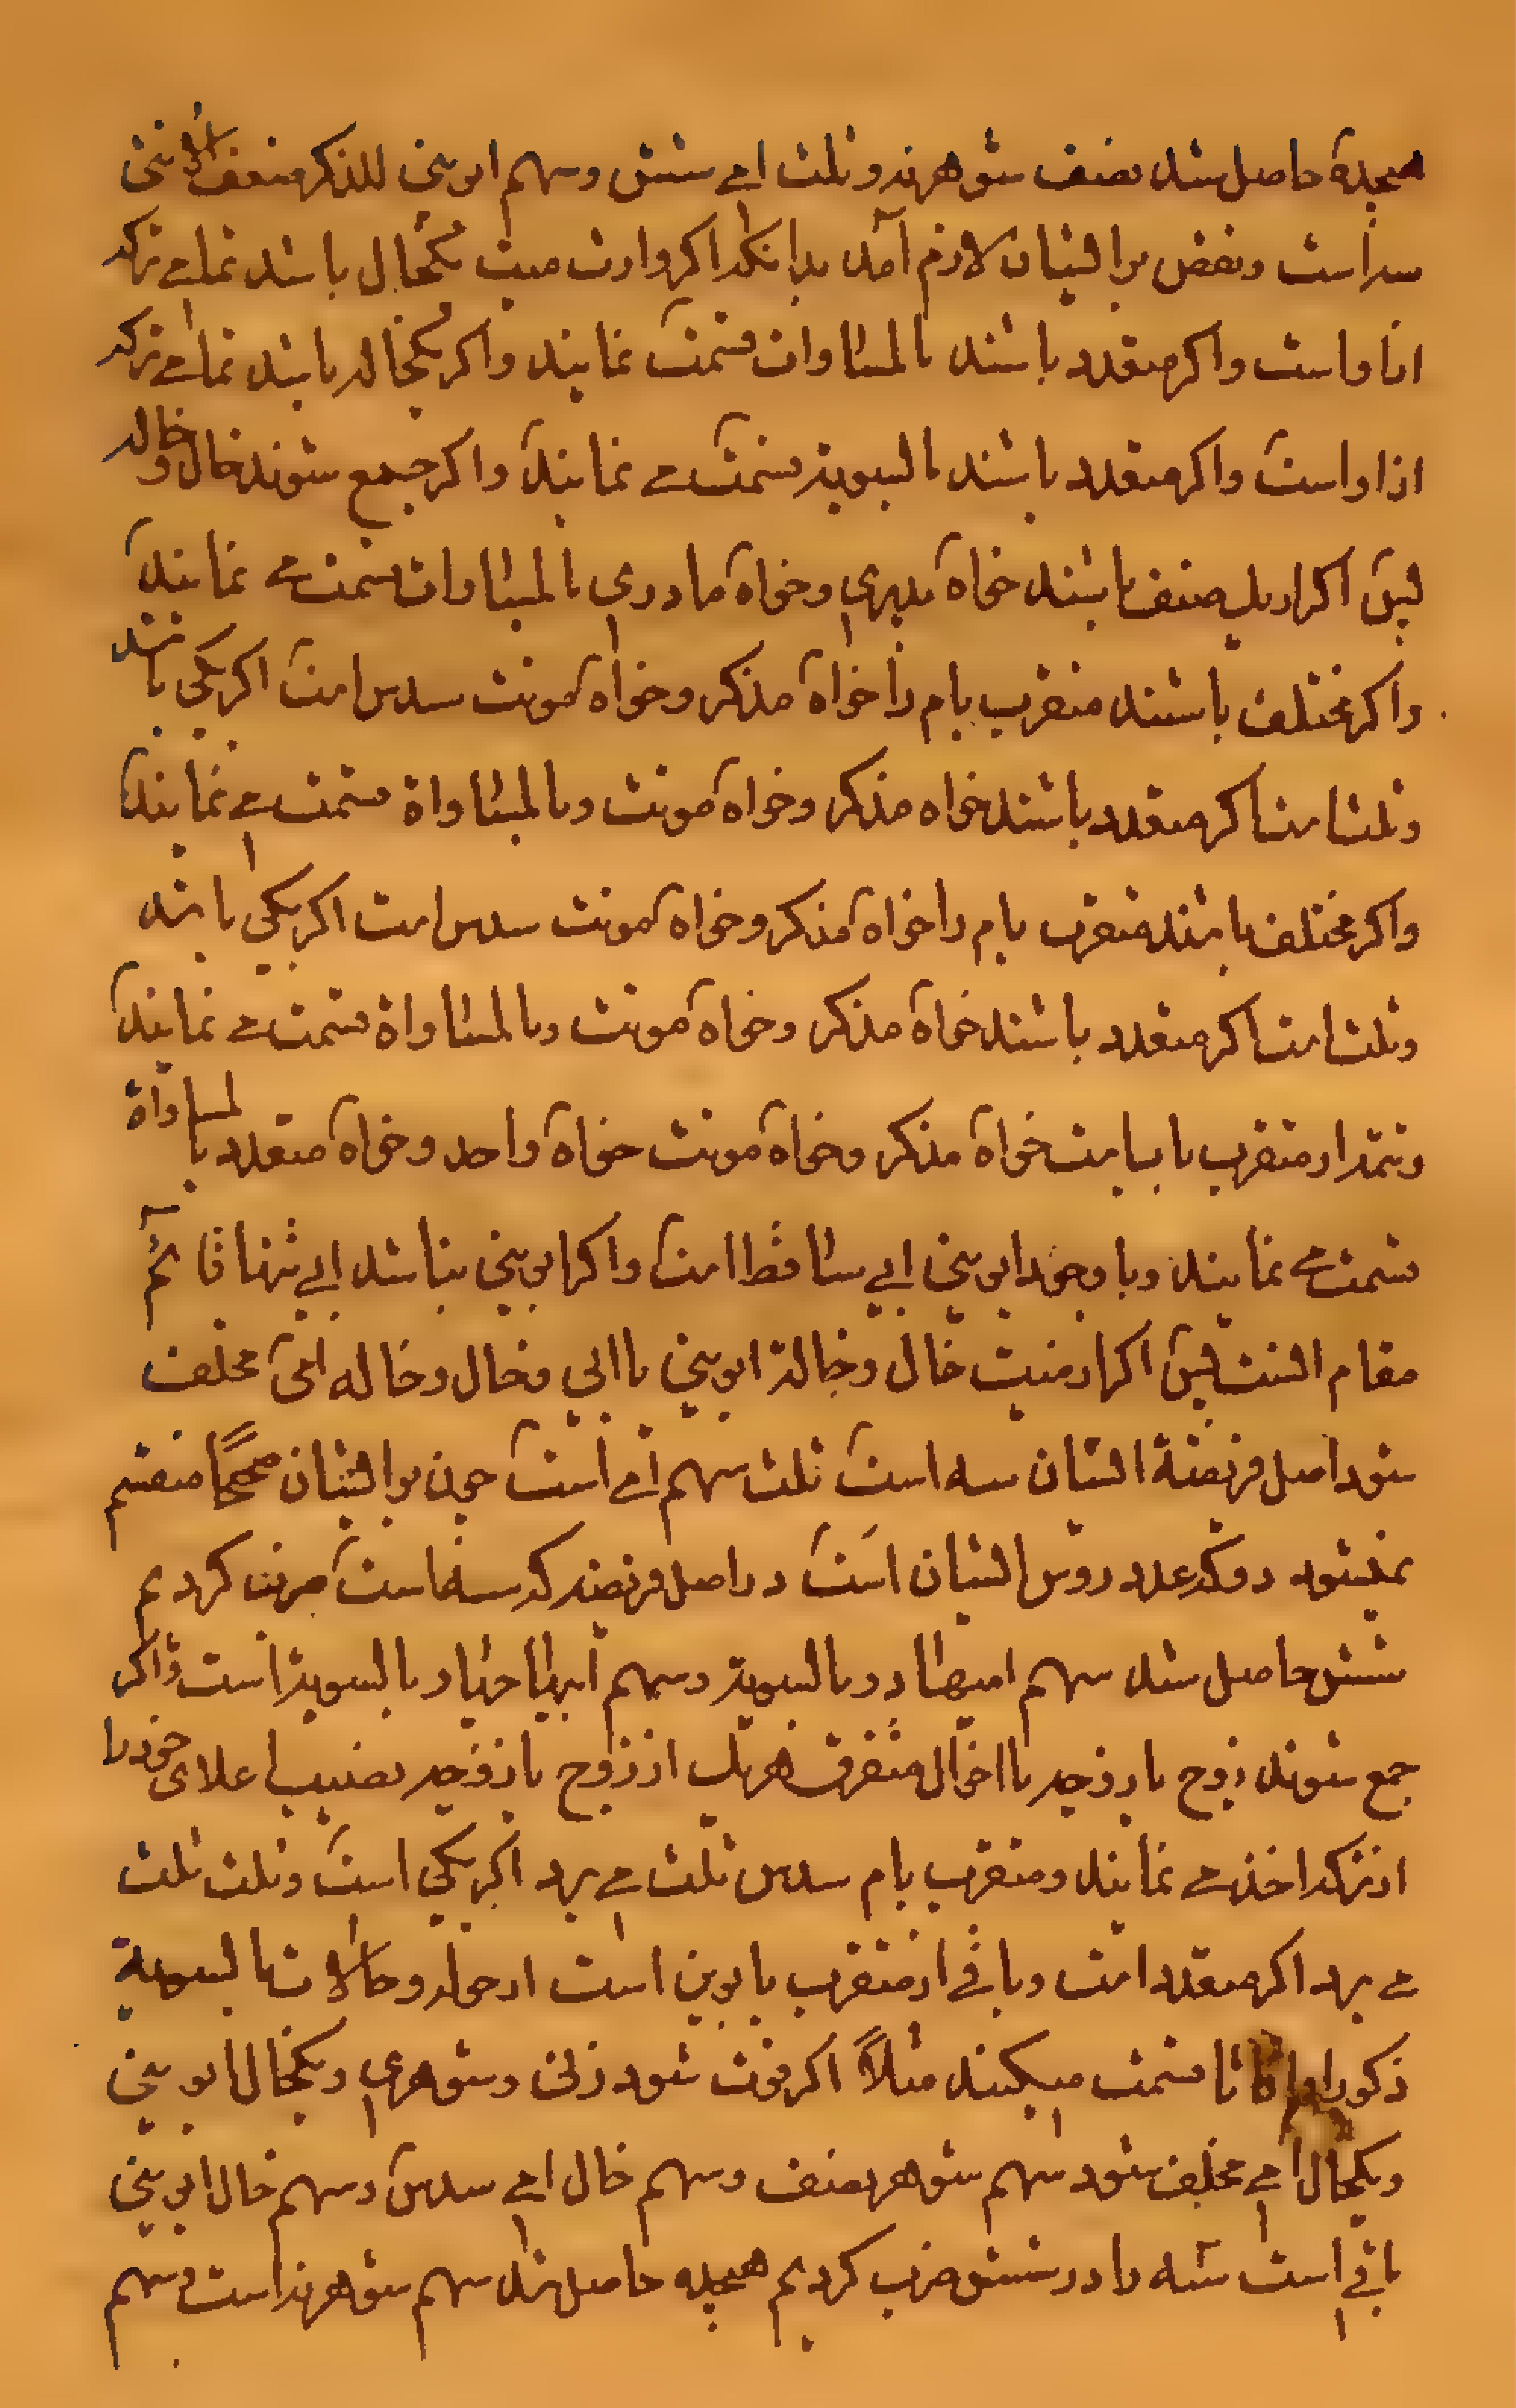 هیجده حاصل شد نصف شوهر نه و ثلث امی شش و سهم ابوینی للذکر ضعف الانثی
سه است و نقص بر ایشان لازم آمد بدانکه اکر وارث میت یکخال باشد تمامی ترکه
از او است و اکر متعدد باشند بالمساوات قسمت نمایند و اکر یکخاله باشد تمامی ترکه
از او است و اکر متعدد باشند بالسویة قسمت می نمایند و اکر جمع شوند خال و خاله
پس اکر از یک صنف باشند خواه پدری و خواه مادری بالمساوات قسمت می نمایند
و اکر مختلف باشند متقرب بام را خواه مذکر و خواه مونث سدس است اکر یکی باشد
و ثلث است اکر متعدد باشند خواه مذکر و خواه مونث و بالمساواة قسمت می نمایند
و اکر مختلف باشند متقرب بام را خواه مذکر و خواه مونث سدس است اکر یکی باشد
و ثلث است اکر متعدد باشند خواه مذکر و خواه مونث و بالمساواة قسمت می نمایند
و تتمه از متقرب باب است خواه مذکر و خواه مونث خواه واحد و خواه متعدد بالمساواة
قسمت می نمایند و با وجود ابوینی ابی ساقط است و اکر ابوینی نباشد ابی تنها قائم
مقام اوست پس اکر از میت خال و خالة ابوینی یا ابی و خال و خاله امی مخلف
شود اصل فریضة ایشان سه است ثلث سهم امی است چون بر ایشان صحیحا منقسم
نمیشود دو که عدد روس ایشان است در اصل فریضه که سه است ضرب کردیم
شش حاصل شد سهم امیها دو بالسویة و سهم ابیها چهار بالسویة است و اکر
جمع شوند زوج یا زوجه با اخوال متفرق هریک از زوج یا زوجه نصیب اعلای خود را
از ترکه اخذ می نمایند و متقرب بام سدس ثلث می برد اکر یکی است و ثلث ثلث
می برد اکر متعدد است و باقی از متقرب بابوین است از خوله و خالات بالسویة
ذکورا و اناثا قسمت میکنند مثلاً اکر فوت شود زنی و شوهری و یکخال ابوینی
و یکخال امی مخلف شود سهم شوهر نصف و سهم خال امی سدس و سهم خال ابوینی
باقی است سه را در شش ضرب کردیم هیجده حاصل شد سهم شوهر نه است و سهم